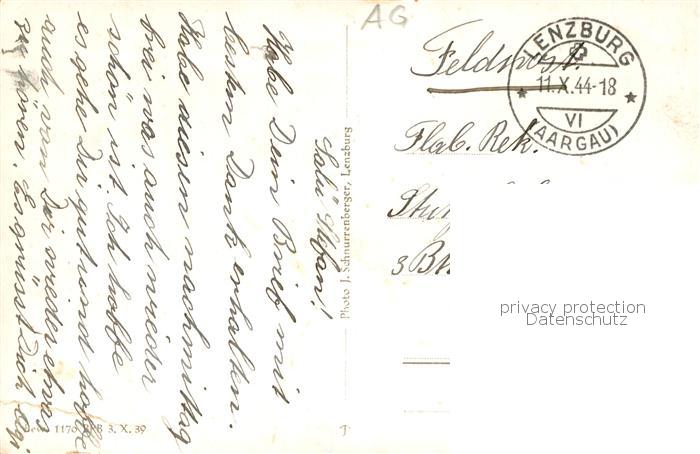 AG
Feldpost.
LENZBURG
11.X.44-18
VI
(AARGAU)
Flab. Rek.
3 Bat
privacy protection
Datenschutz
Photo J. Schnurrenberger, Lenzburg
Salü Stefan!
Habe Dein Brief mit
besten Dank erhalten.
Habe diesen nachmittag
frei was auch wieder
schön ist. Ich hoffe
es gehe Dir gut und hoffe
auch von Dir wieder etwas
zu hören. Es grüsst Dich
1170 BRB 3. X. 39